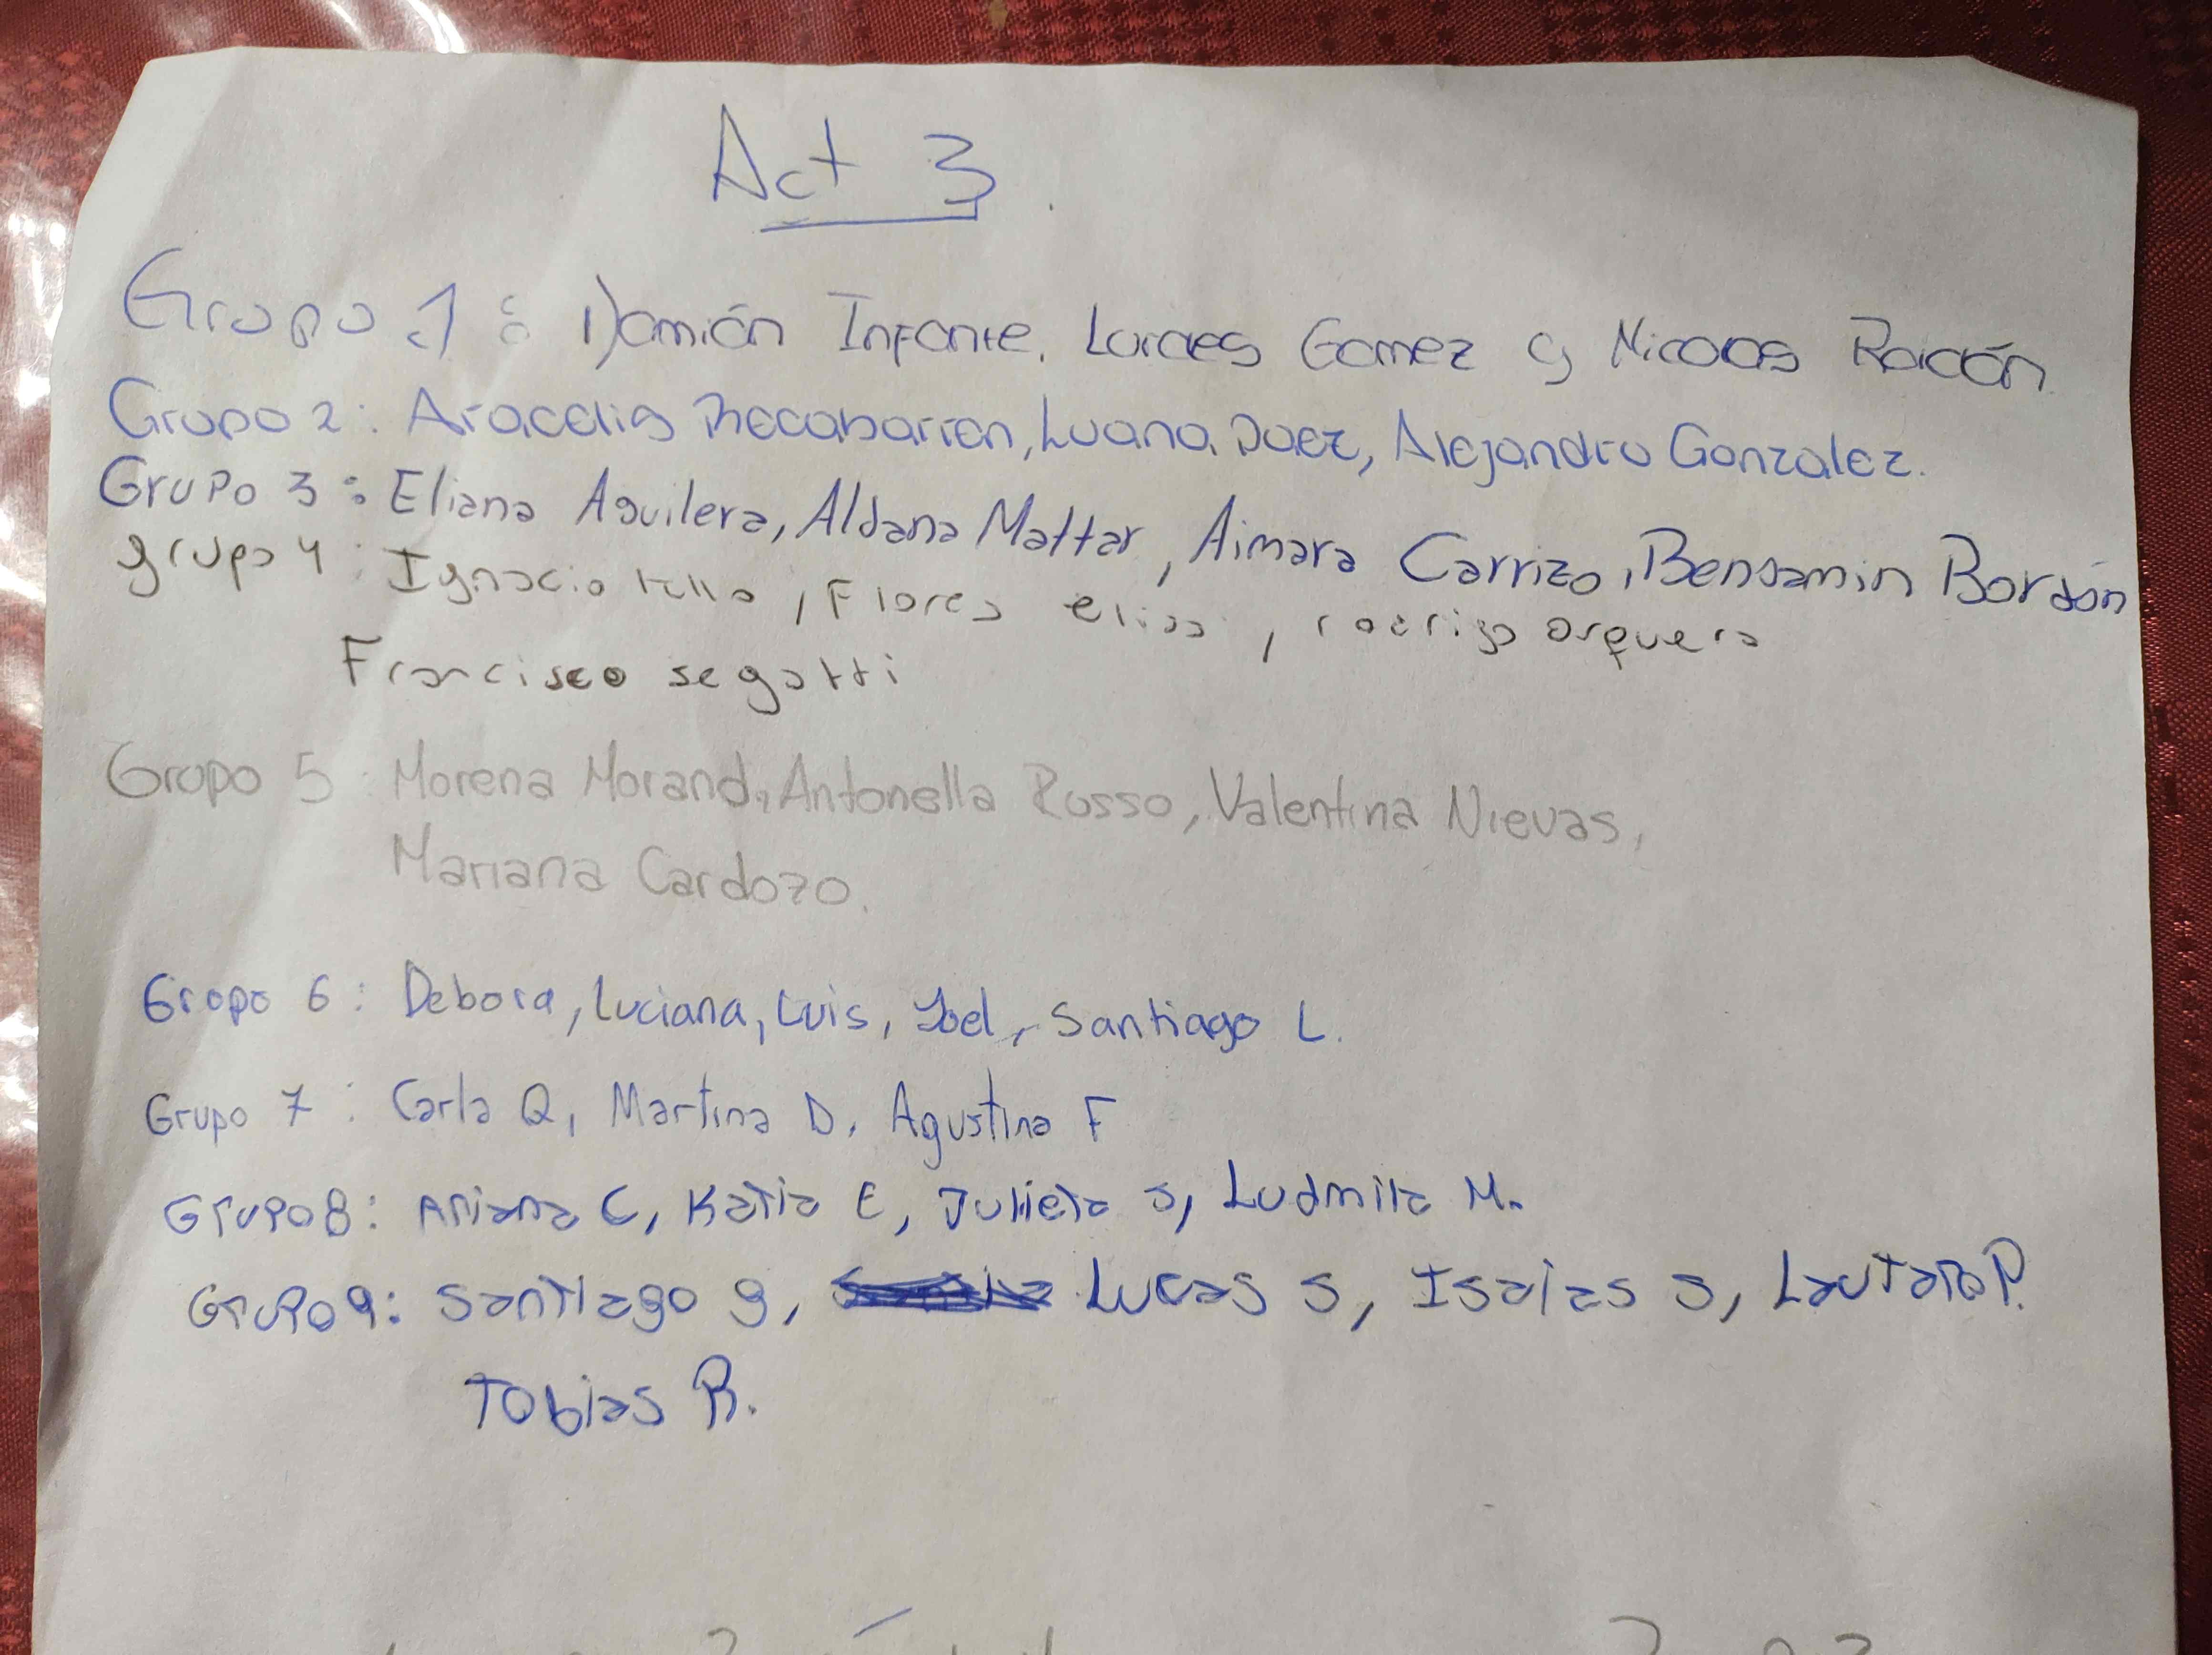 Act 3
Grupo 1: Damián Infante, Lordes Gomez y Nicolas
Grupo 2: Aracelis Recabarren, Luana Daez, Alejandro Gonzalez.
Grupo 3: Eliana Aguilera, Aldana Mattar, Aimara Carrizo, Bensamin Bordón
grupo 4: Ignacio, Flores elias, rodrigo orquera
Francisco segatti
Grupo 5 Morena Morand, Antonella Rosso, Valentina Nievas,
Mariana Cardozo.
Grupo 6: Debora, Luciana, Luis, Joel, Santiago L.
Grupo 7: Carla Q, Martina D, Agustina F
Grupo 8: Ariana C, Katia E, Julieta S, Ludmila M.
Grupo 9: Santiago g, Lucas S, Isaias S, Lautaro P.
Tobias R.